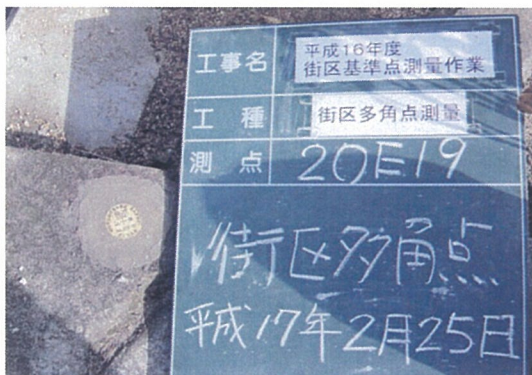 工事名
平成16年度
街区基準点測量作業
工 種
街区多角点測量
測 点
20E19
街区多角点
平成17年2月25日